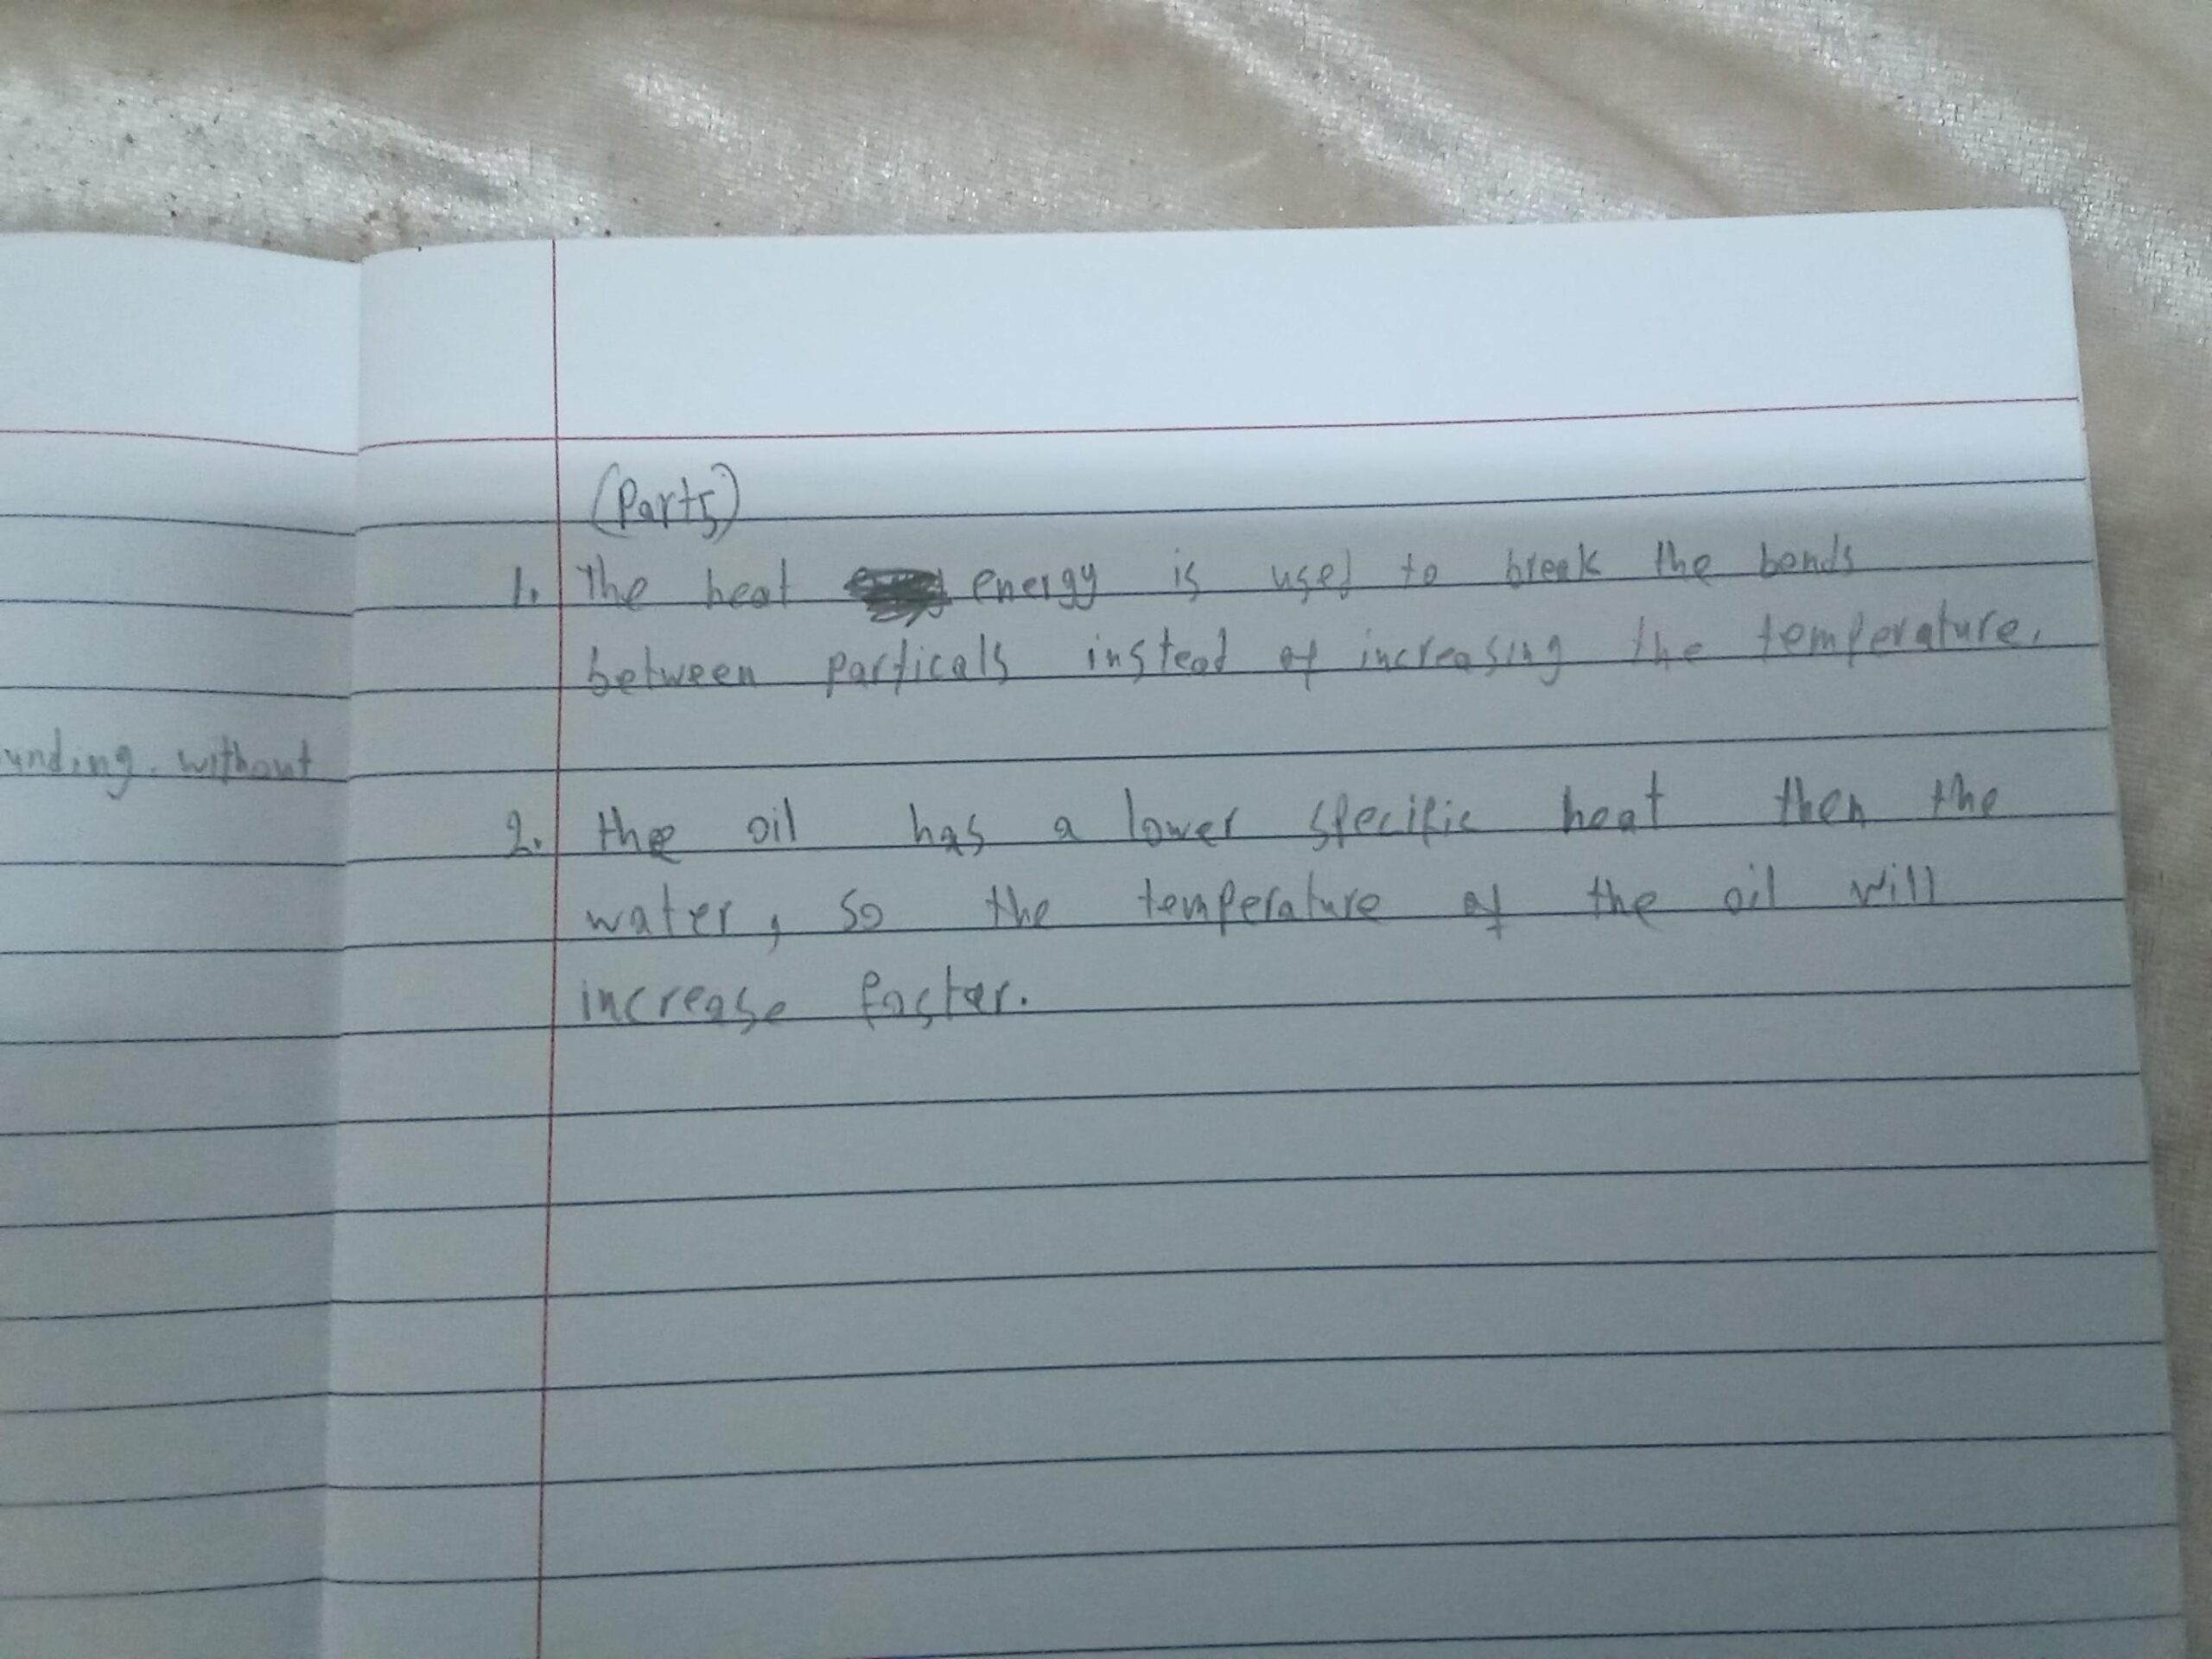 (Part5)
1. The heat energy is used to break the bonds
between particals instead of increasing the temperature.
unding. without
2. thee oil has a lower specific heat then the
water, so the temperature of the oil will
increase faster.